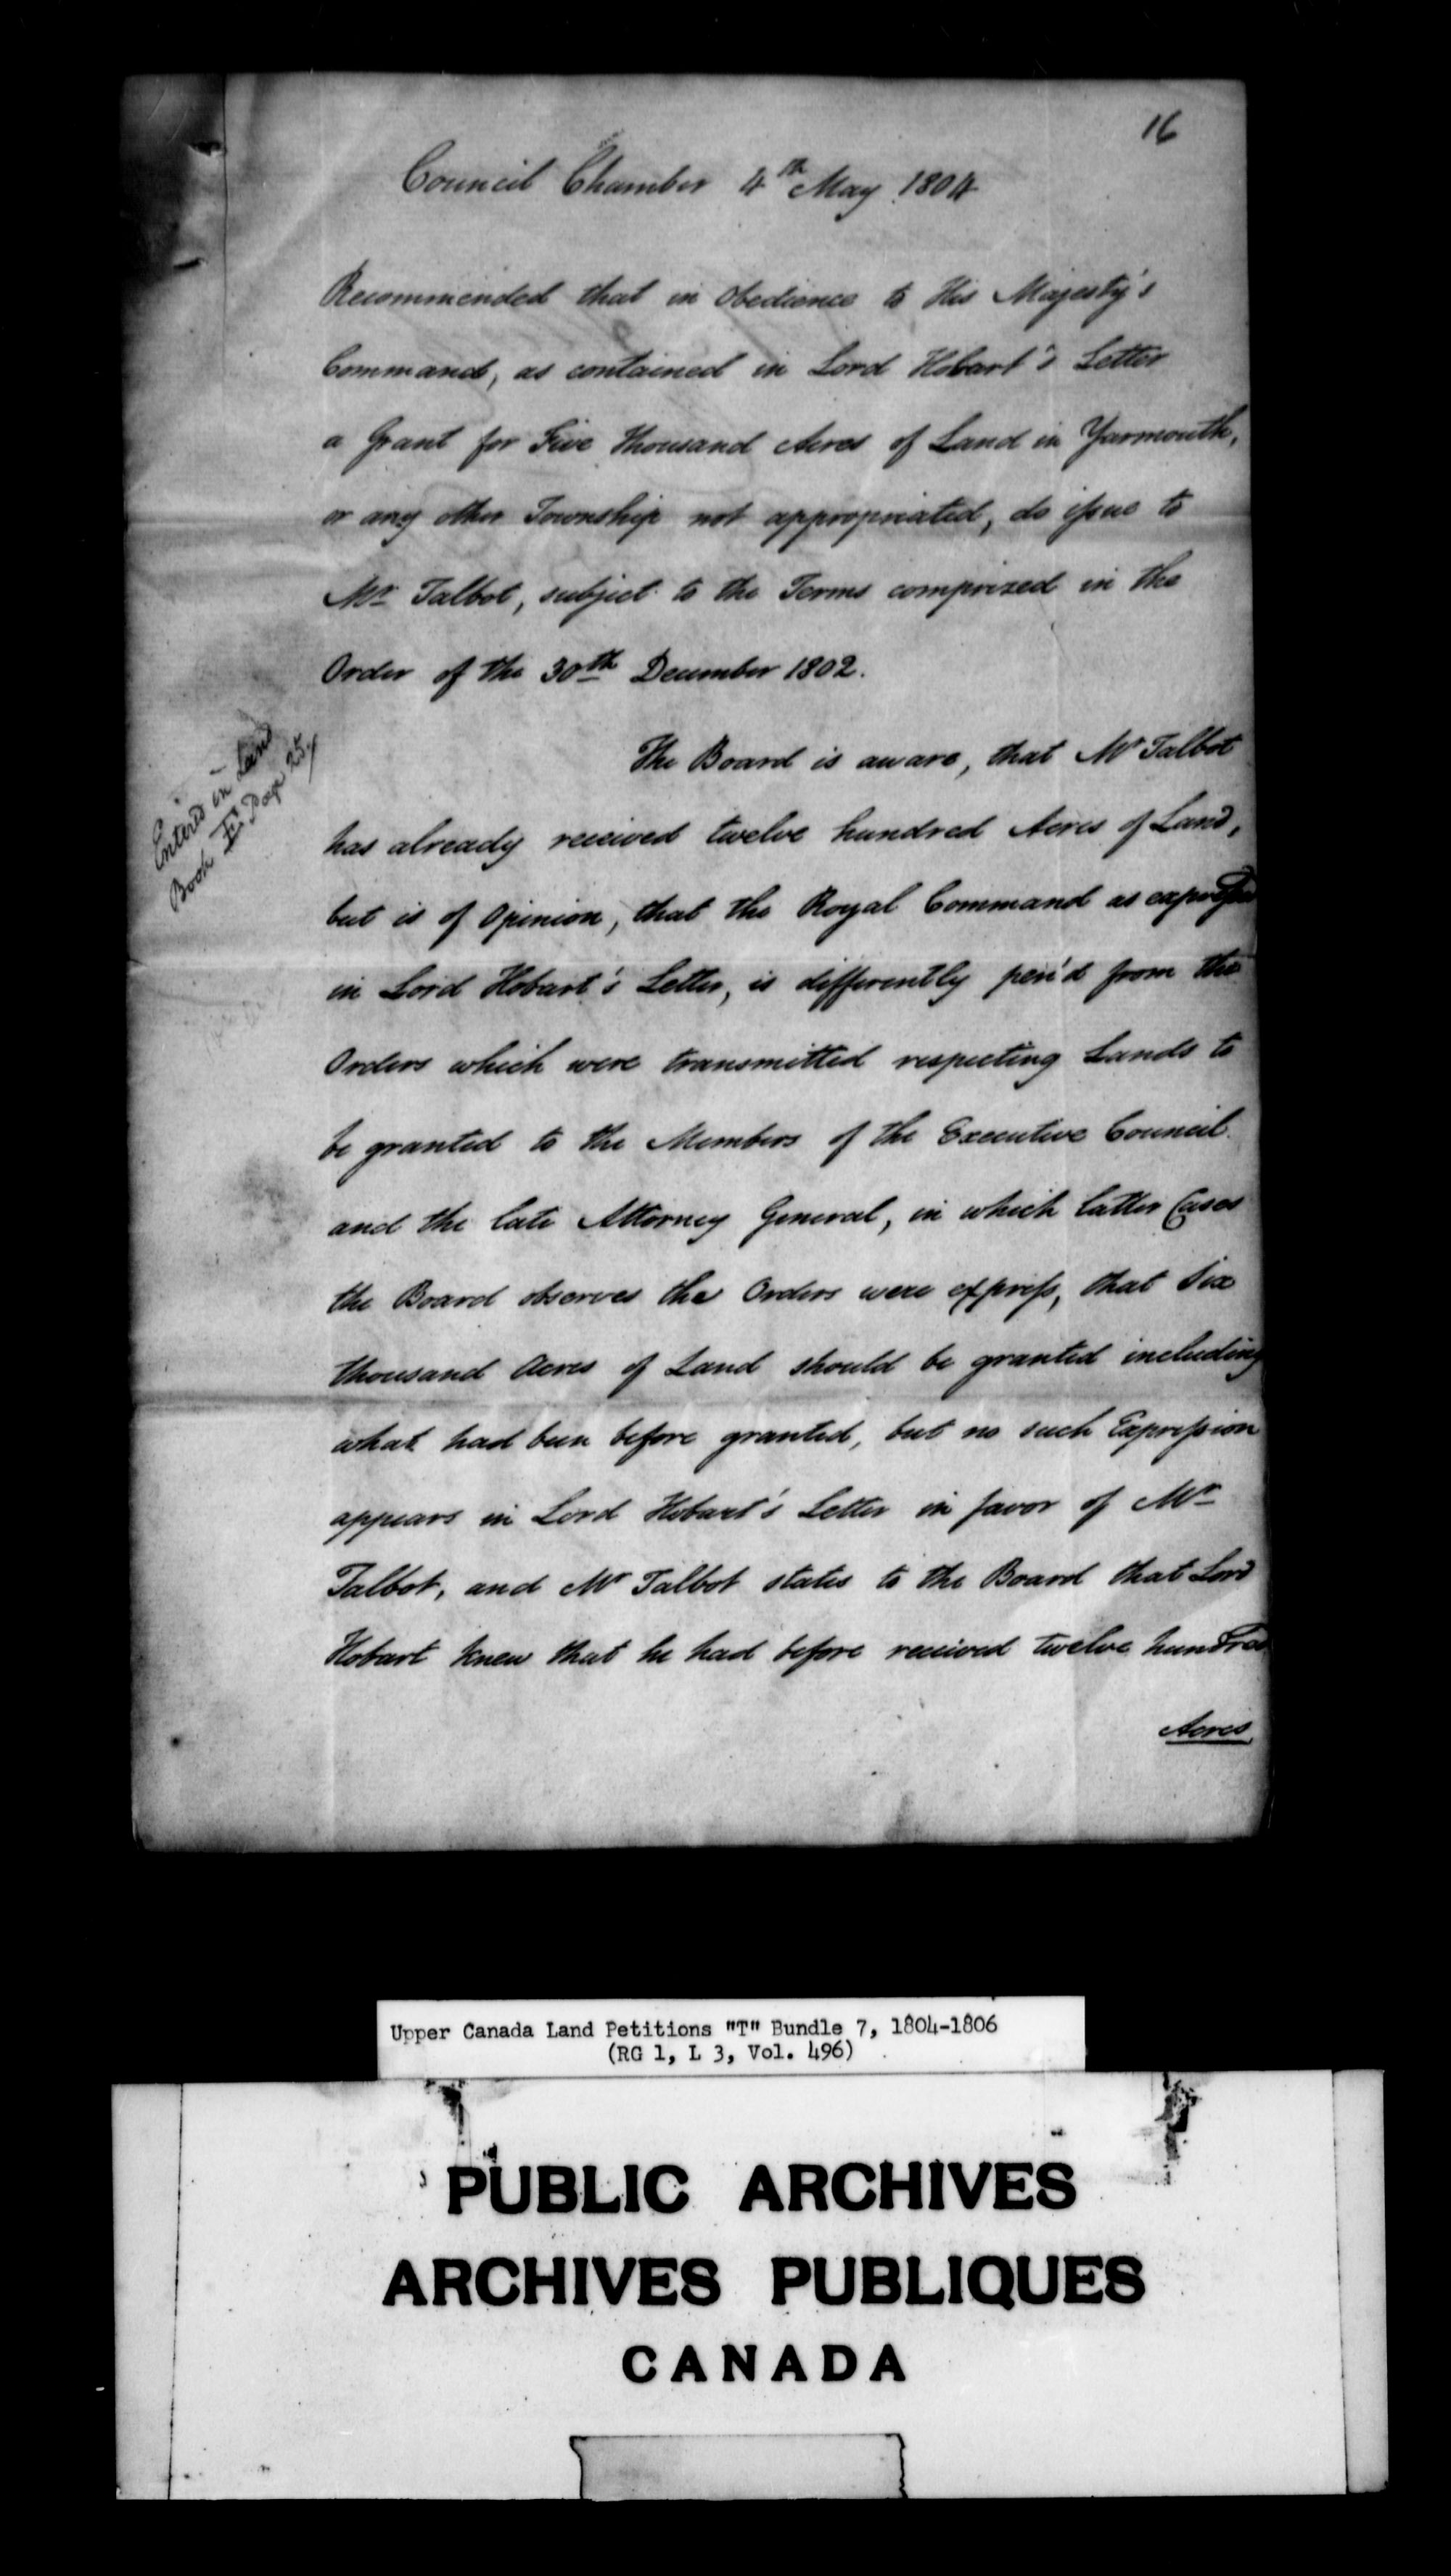 16
Council Chamber 4th May 1804
Recommended that in obedience to His Majesty's
Command, as contained in Lord Hobart's Letter
a Grant for Five Thousand Acres of Land in Yarmouth,
or any other Township not appropriated, do issue to
Mr Talbot, subject to the Terms comprized in the
Order of the 30th December 1802.
Entered in Land
Book Page 25
The Board is aware, that Mr Talbot
has already received twelve hundred Acres of Land,
but is of Opinion, that the Royal Command as expressed
in Lord Hobart's Letter, is differently pen'd from the
Orders which were transmitted respecting Lands to
be granted to the Members of the Executive Council
and the late Attorney General, in which latter Cases
the Board observes the Orders were express, that Six
thousand Acres of Land should be granted including
what had been before granted, but no such Expression
appears in Lord Hobart's Letter in favor of Mr
Talbot, and Mr Talbot states to the Board that Lord
Hobart knew that he had before received twelve hundred
Acres
Upper Canada Land Petitions "T" Bundle 7, 1804-1806
(RG 1, L 3, Vol. 496)
PUBLIC ARCHIVES
ARCHIVES PUBLIQUES
CANADA